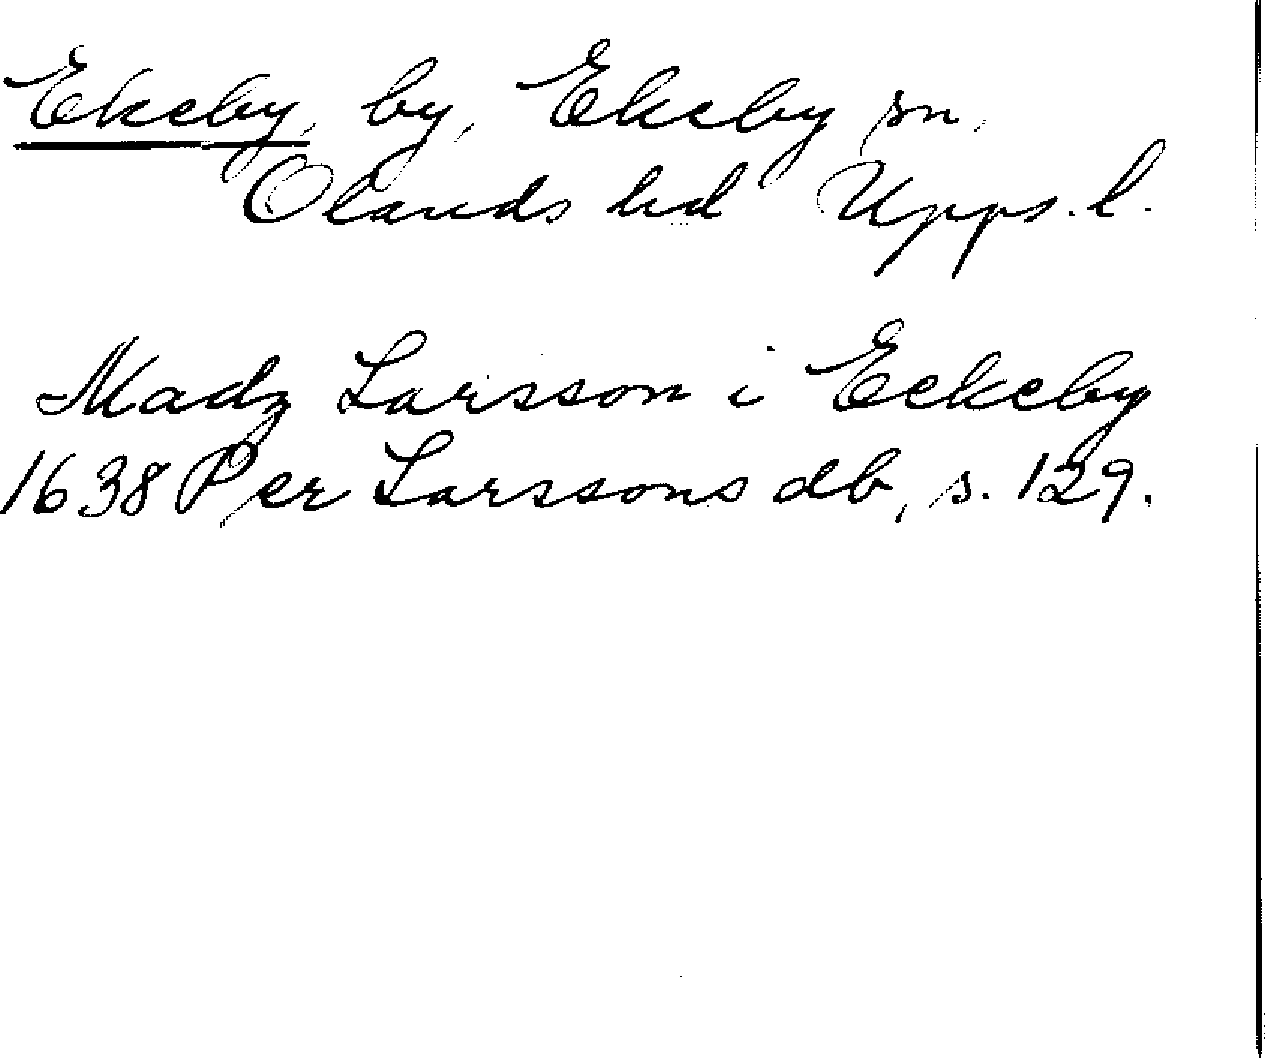 Ekeby, by, Ekeby sn,
Olands hd Upps. l.
Madz Larsson i Eckeby
1638 Per Larssons db, s. 129.